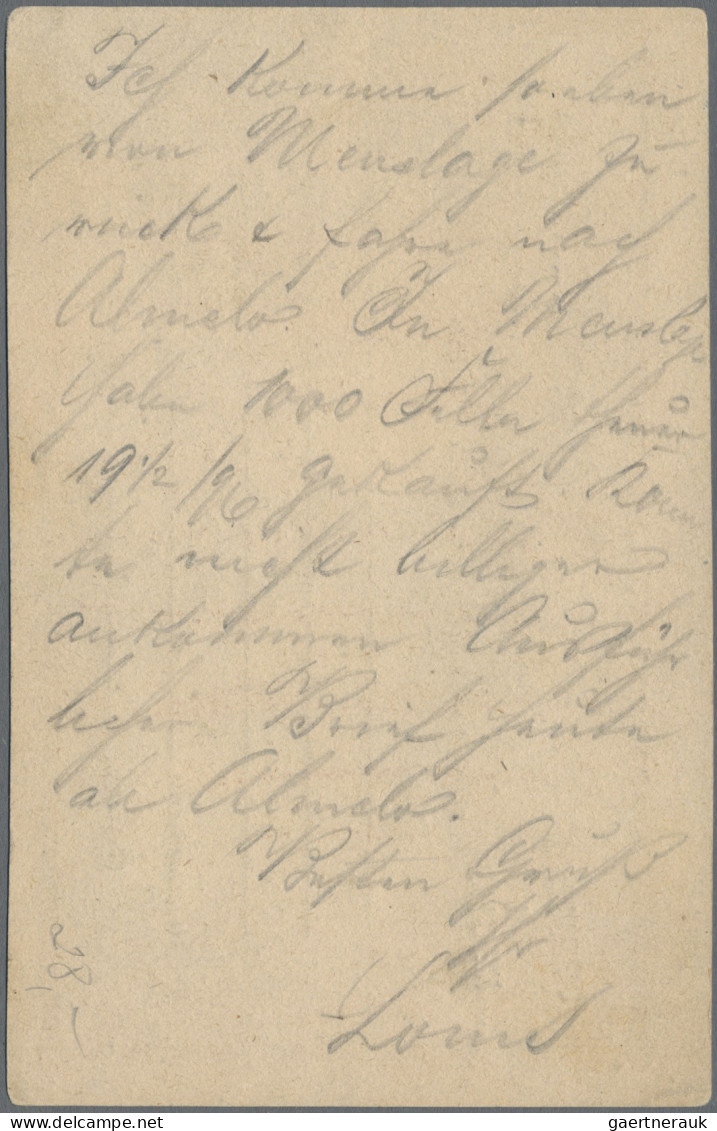 Ich komme soeben
von Menslage zu
rück & fahre nach
Almelo. In Menslage
habe 1000 Felle
19 1/2 gekauft. Konn
te nicht billiger
ankommen Ausführ
licher Brief heute
ab Almelo.
Besten Gruß
Ihr
Louis
28,-
gaertnerauk